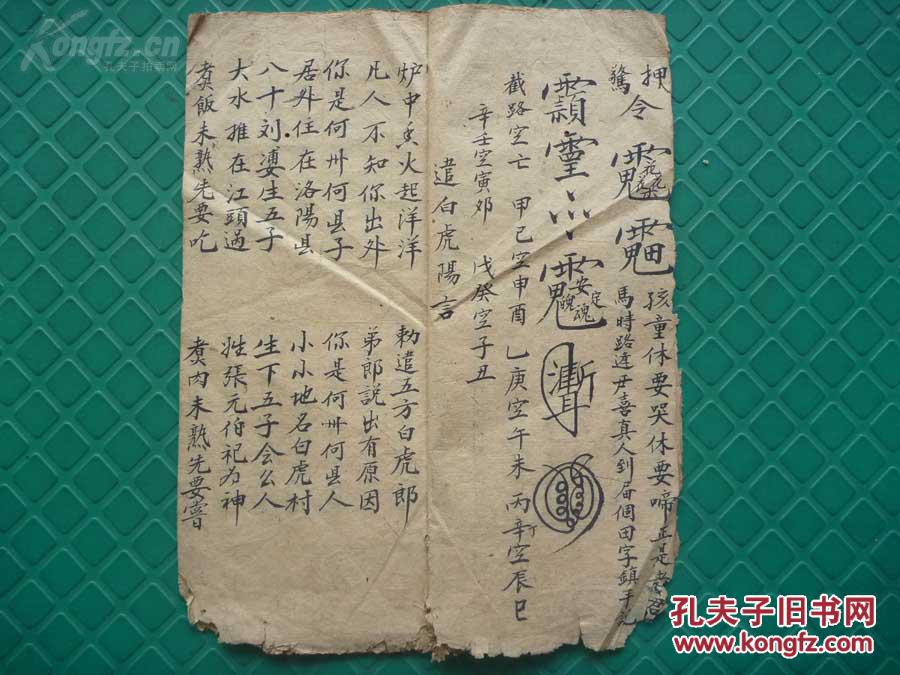 押
驚令
孩童休要哭休要啼正是
馬時路逢尹喜真人到届個田字鎮
安魂定魄
截路空亡 甲己空申酉 乙庚空午未 丙辛空辰巳
辛壬空寅夘 戊癸空子丑
遣白虎陽言
炉中焦火起洋洋 勅遣五方白虎郎
凡人不知你出外 弟郎説出有原因
你是何州何县子 你是何州何县人
居外住在洛陽县 小小地名白虎村
八十刘婆生五子 生下五子会么人
大水推在江頭過 姓張元伯祀为神
煑飯未熟先要吃 煑肉未熟先要嘗
Kongfz.cn
孔夫子拍卖网
孔夫子旧书网
www.kongfz.com